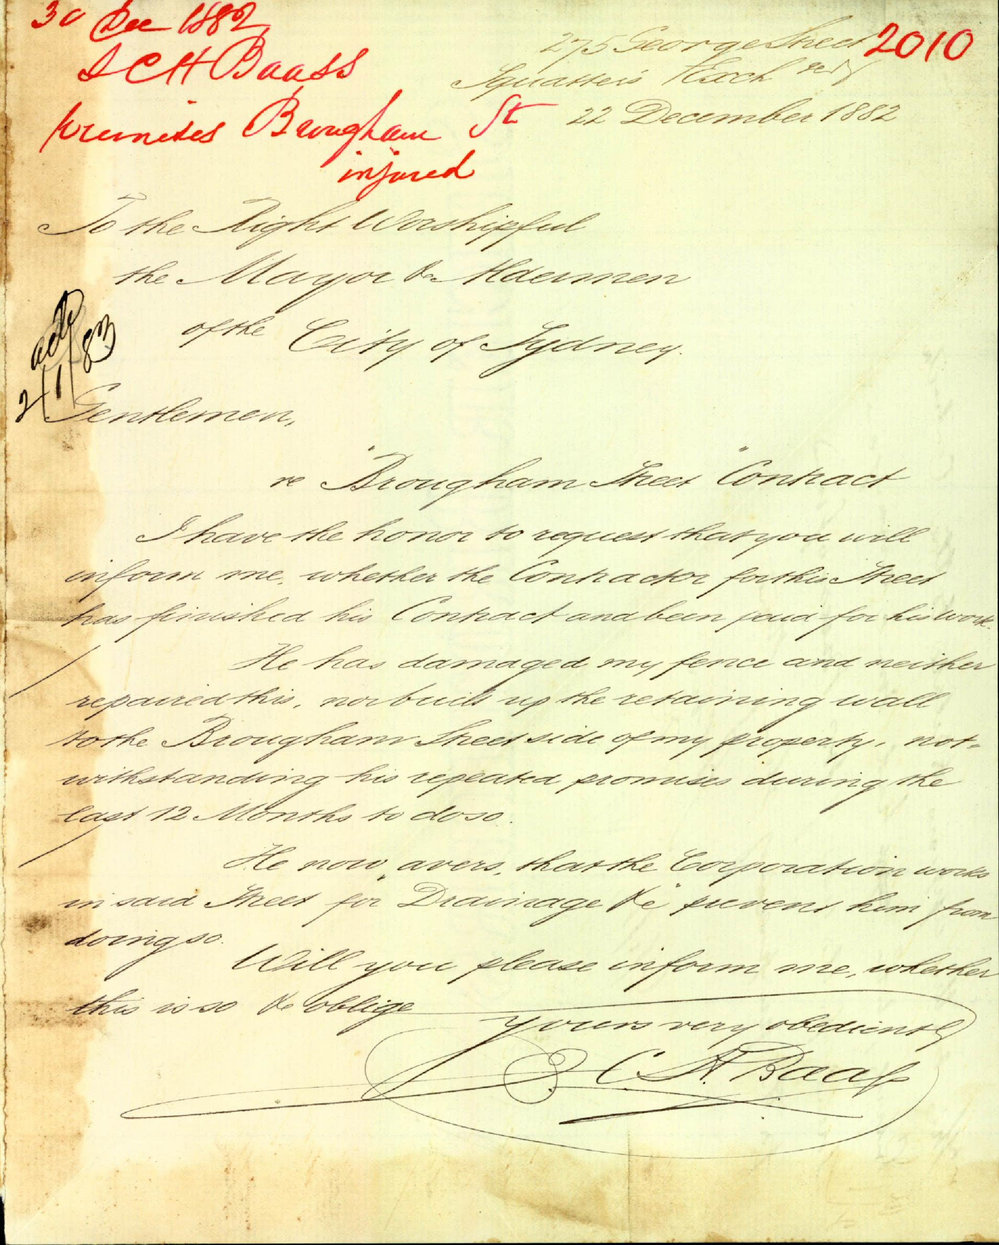 30 Dec 1882
I C H Baass
premises Brougham St
injured
2010
275 George Street
Squatters Exch
22 December 1882
To the Right Worshipful
the Mayor & Aldermen
of the City of Sydney.
ack
2/1/83
Gentlemen,
re "Brougham Street" Contract
I have the honor to request that you will
inform me, whether the Contractor for this Street
has finished his Contract and been paid for his work.
He has damaged my fence and neither
repaired this, nor built up the retaining wall
to the Brougham Street side of my property, not-
withstanding his repeated promises during the
last 12 Months to do so.
He now avers, that the Corporation works
in said Street for "Drainage &c" prevent him from
doing so.
Will you please inform me, whether
this is so & oblige
Yours very obediently
C H Baass